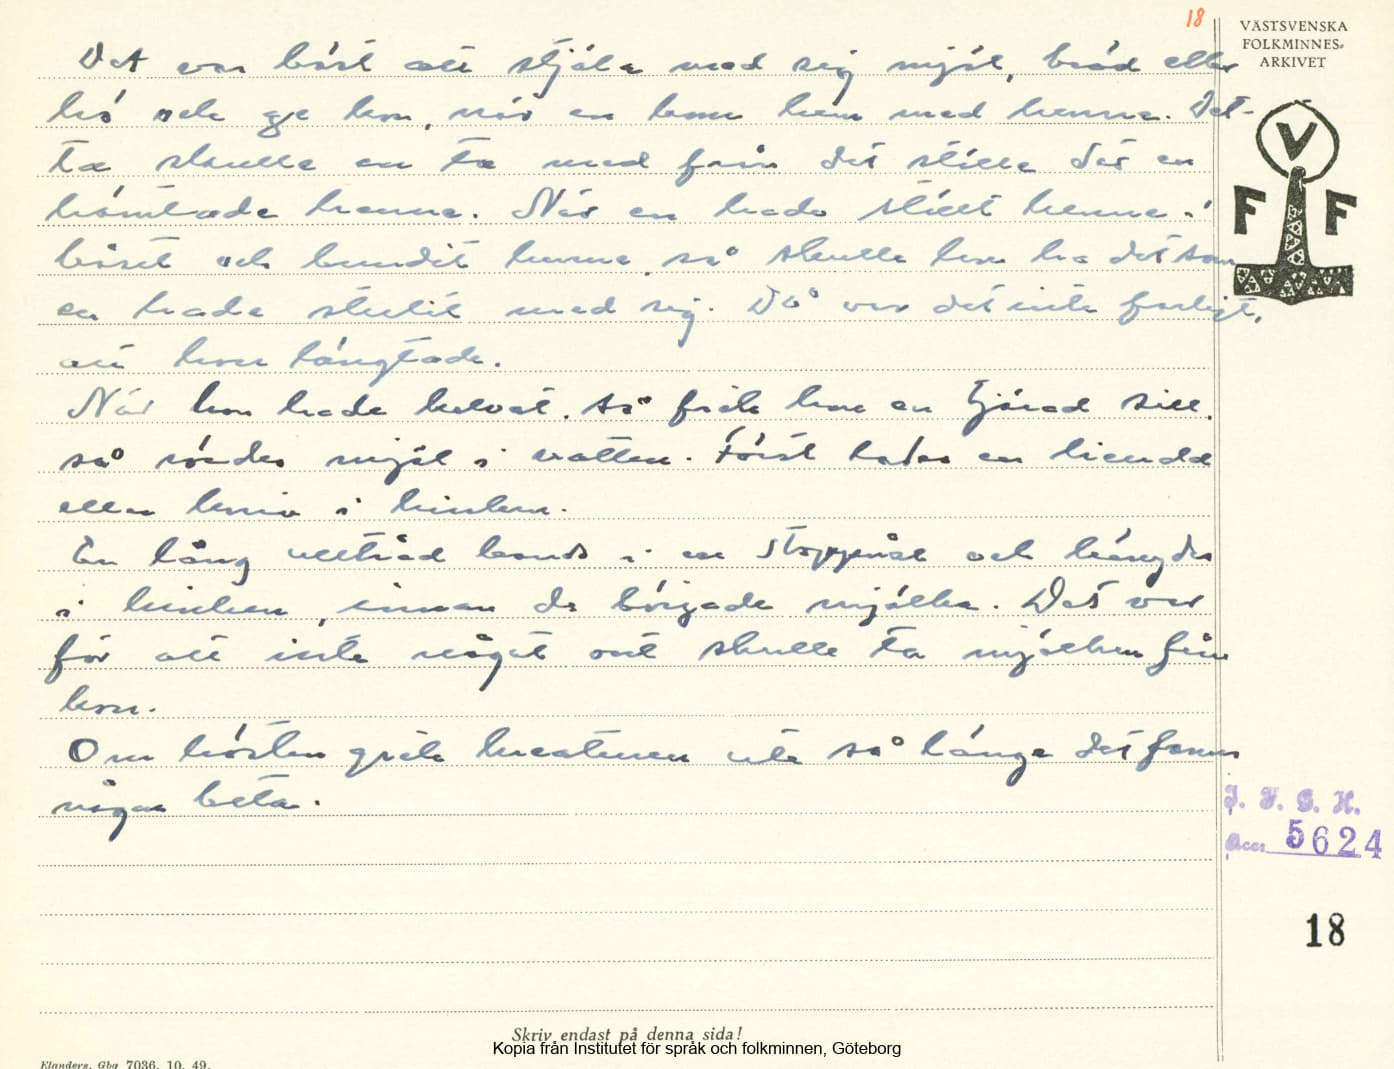 18
VÄSTSVENSKA
FOLKMINNES-
ARKIVET
V
F F
Det var bäst att stjäla med sig mjöl, bröd eller
hö och ge kon, när en kom hem med henne. Det-
ta skulle en ta med från det ställe där en
hämtade henne. När en hade ställt henne i
båset och bundit henne, så skulle hon ha det som
en hade stulit med sig. Då var det inte farligt,
att hon längtade.
När hon hade kalvat, så fick hon en tjärad sill,
så rördes mjöl i vatten. Först lades en
eller kniv i hinken.
En lång ulltråd bands i en stoppnål och hängdes
i hinken, innan de började mjölka. Det var
för att inte något ont skulle ta mjölken från
kon.
Om hösten gick kreaturen ute så länge det fanns
något beta.
I. F. G. H.
Acc. 5624
18
Skriv endast på denna sida!
Kopia från Institutet för språk och folkminnen, Göteborg
Elanders, Gbg 7036. 10. 49.